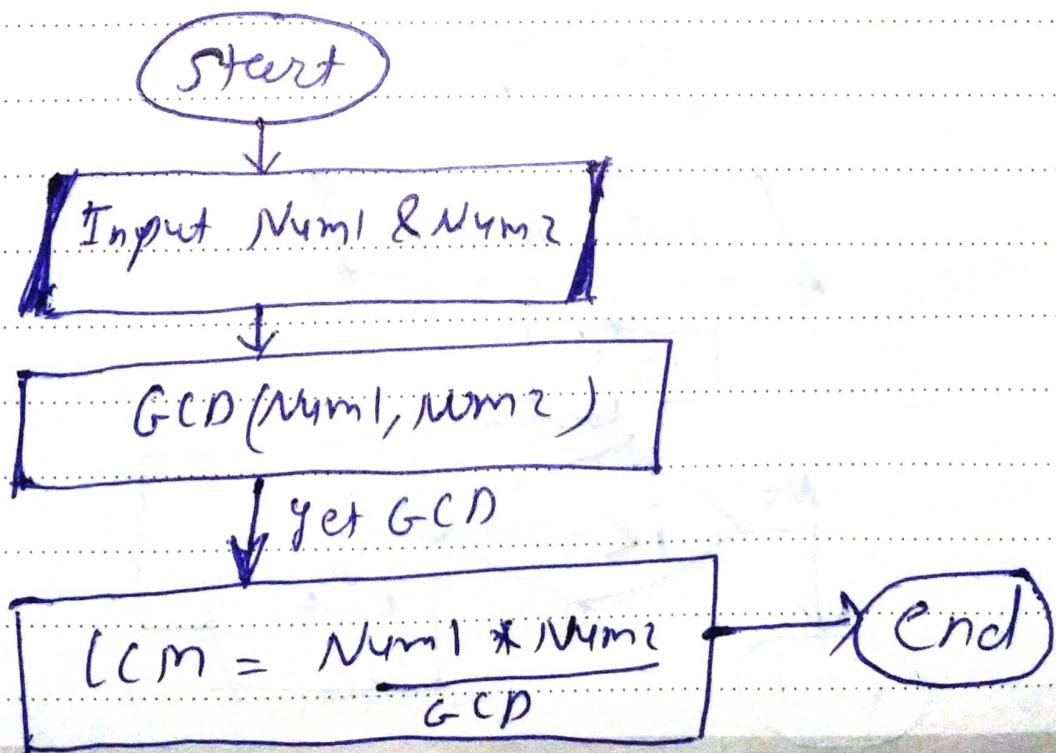 Start
Input Num1 & Num2
GCD(Num1, Num2)
get GCD
LCM = Num1 * Num2
GCD
end